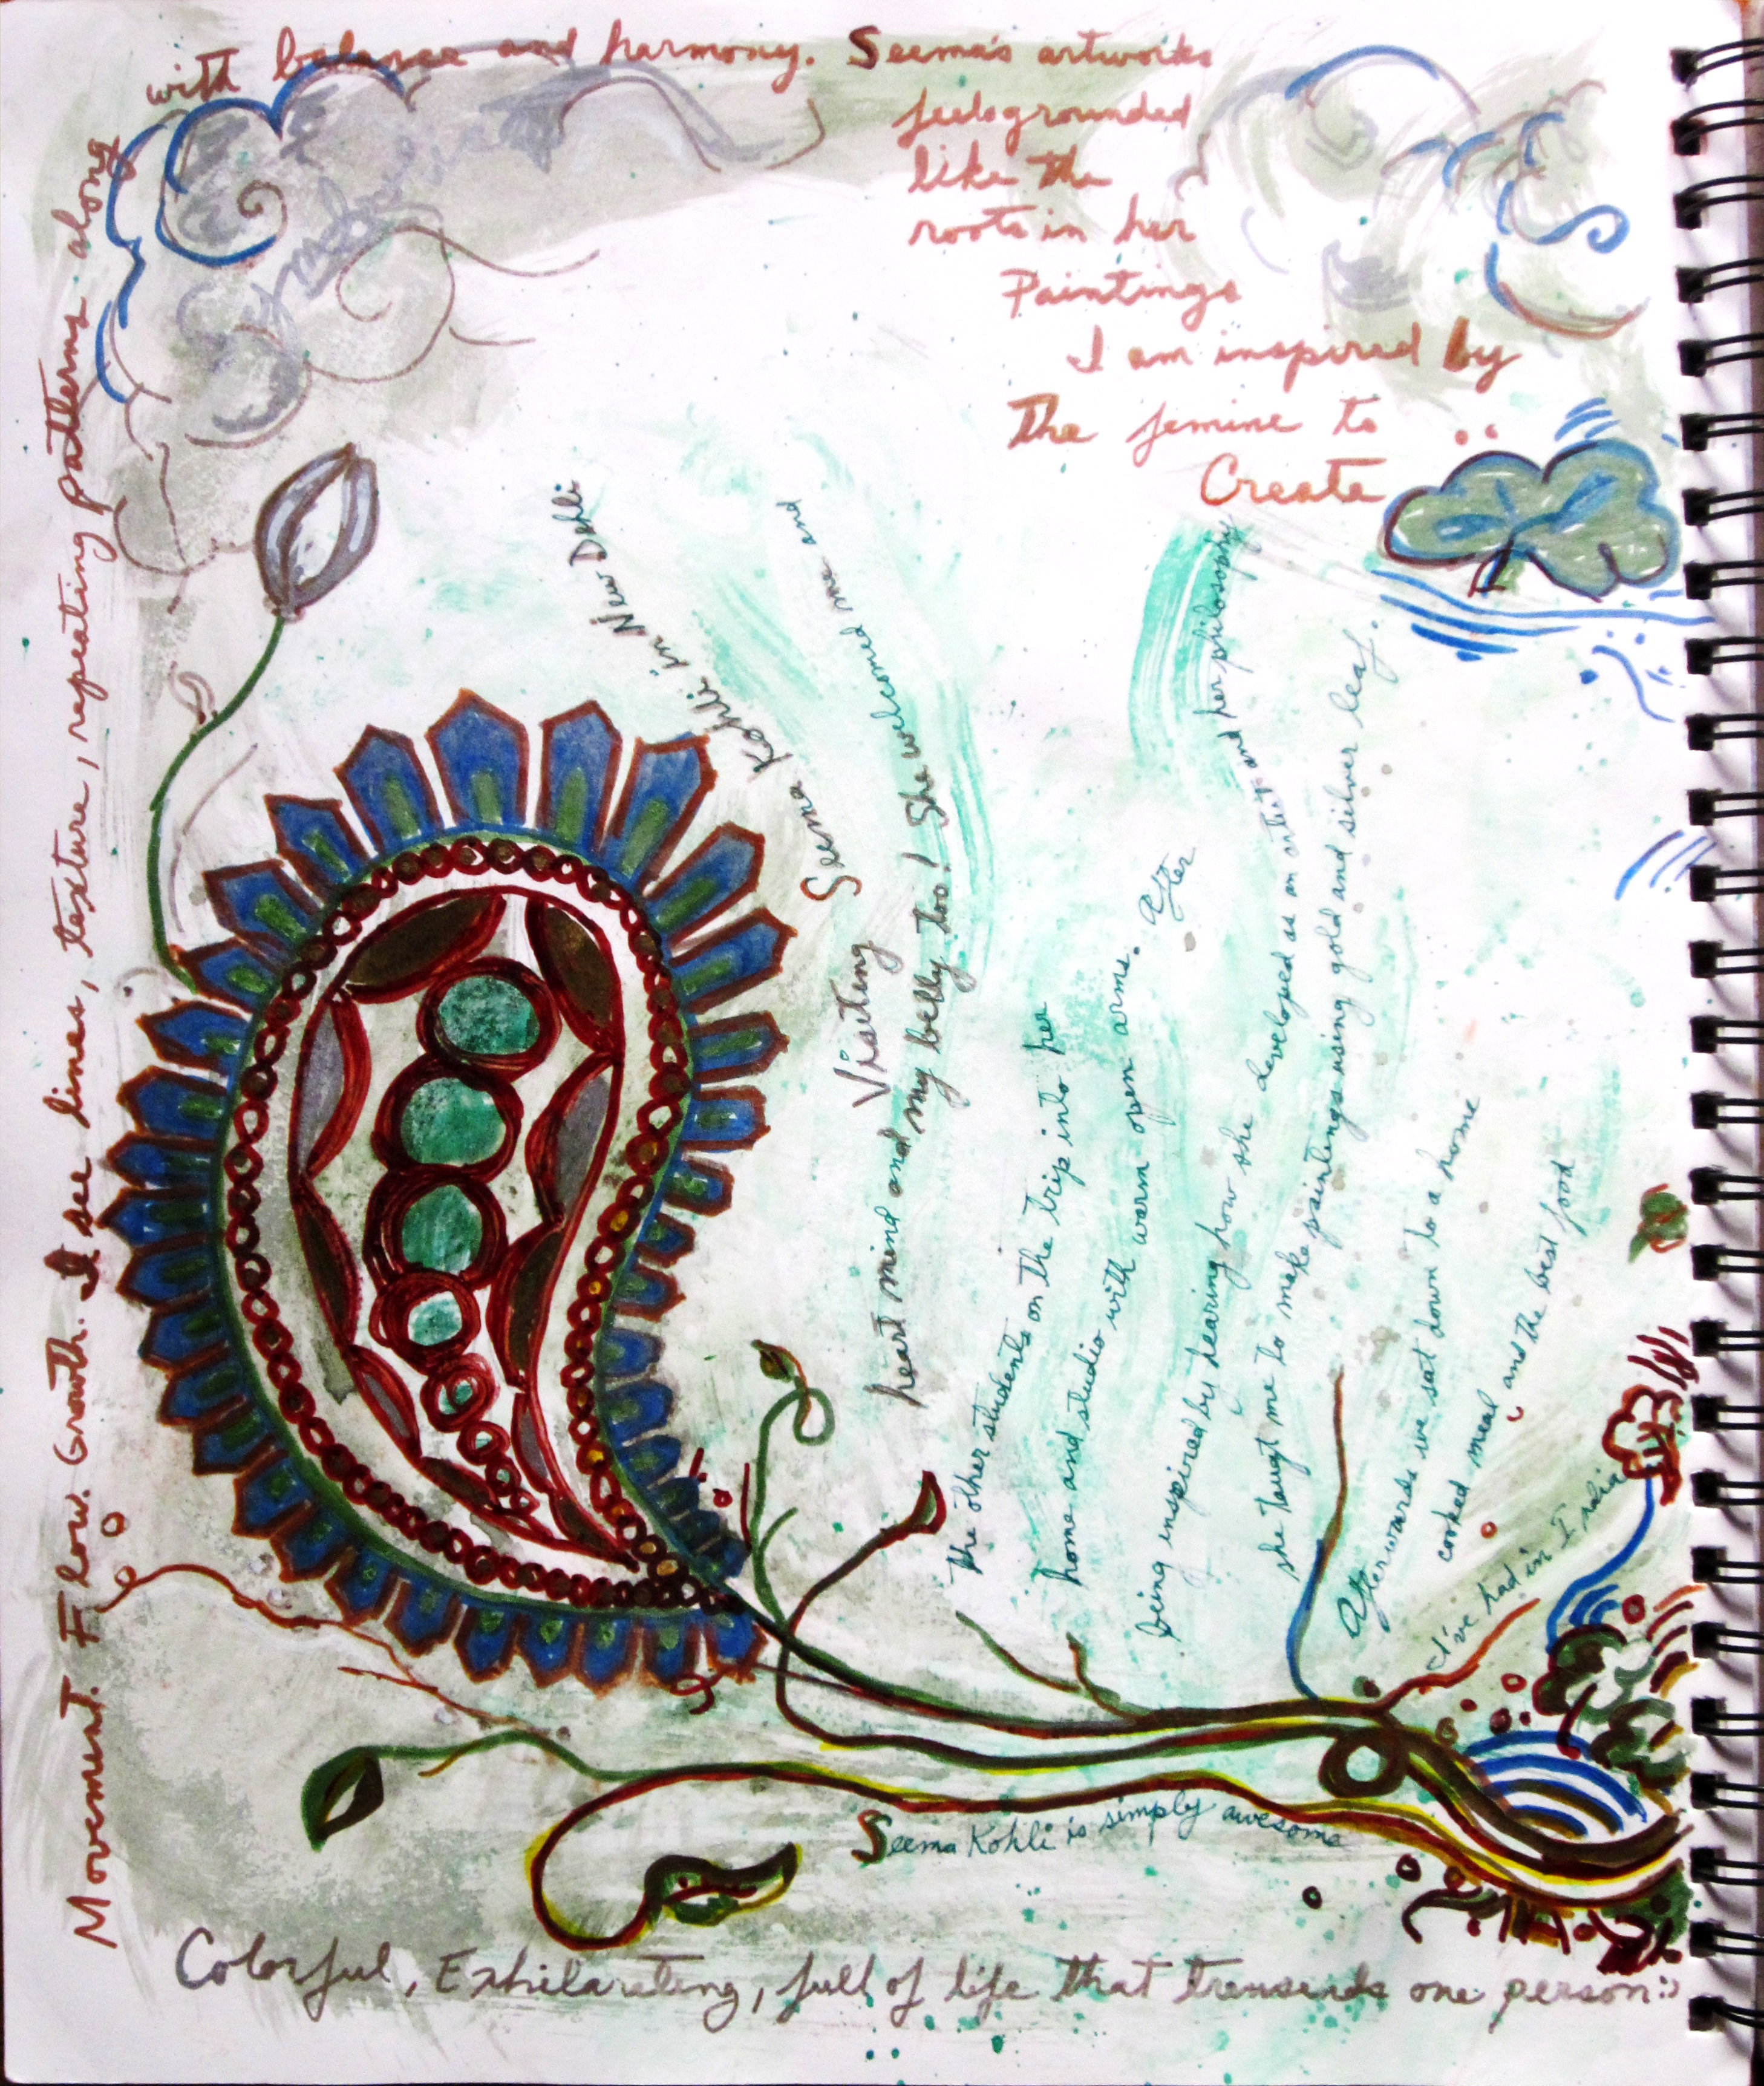 Movement. Flow. Growth. I see lines, texture, repeating patterns along
with balance and harmony. Seema's artworks
feels grounded
like the
roots in her
Paintings
I am inspired by
The femine to
Create
Visiting Seema Kohli in New Dehli
heart mind and my belly too! She welcomed me and
the other students on the trip into her
home and studio with warm open arms. After
being inspired by hearing how she developed as an artist and her philosophy
she taugt me to make paintings using gold and silver leaf.
Afterwards we sat down to a home
cooked meal and the best food
I've had in India
Seema Kohli is simply awesome
Colorful, Exhilarating, full of life that transends one person:)